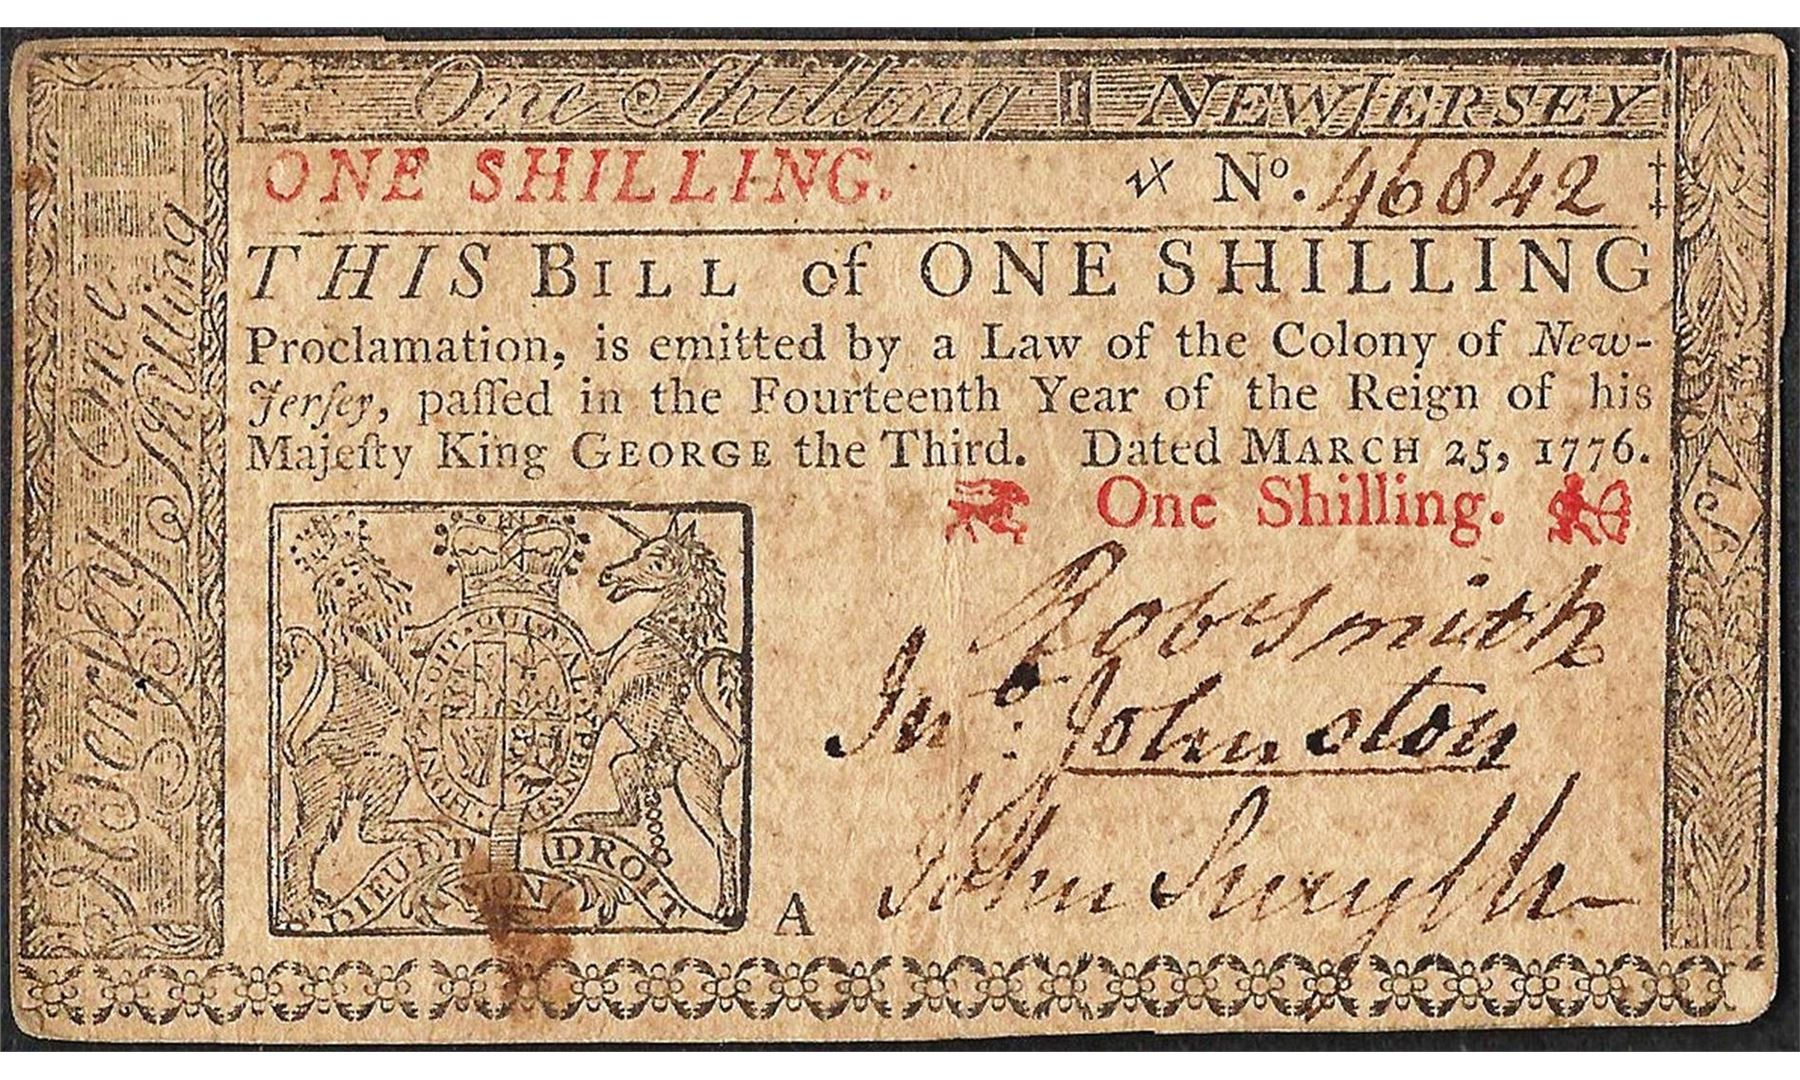 One Shilling I NEW JERSEY
ONE SHILLING. No. 46842 ‡
THIS BILL of ONE SHILLING
Proclamation, is emitted by a Law of the Colony of New-
Jerſey, paſſed in the Fourteenth Year of the Reign of his
Majeſty King GEORGE the Third. Dated MARCH 25, 1776.
One Shilling.
Robt Smith
Jno. Johnston
John Smyth
HONI SOIT QUI MAL Y PENSE
DIEU ET MON DROIT
A
N Jerſey One
Shilling
1S